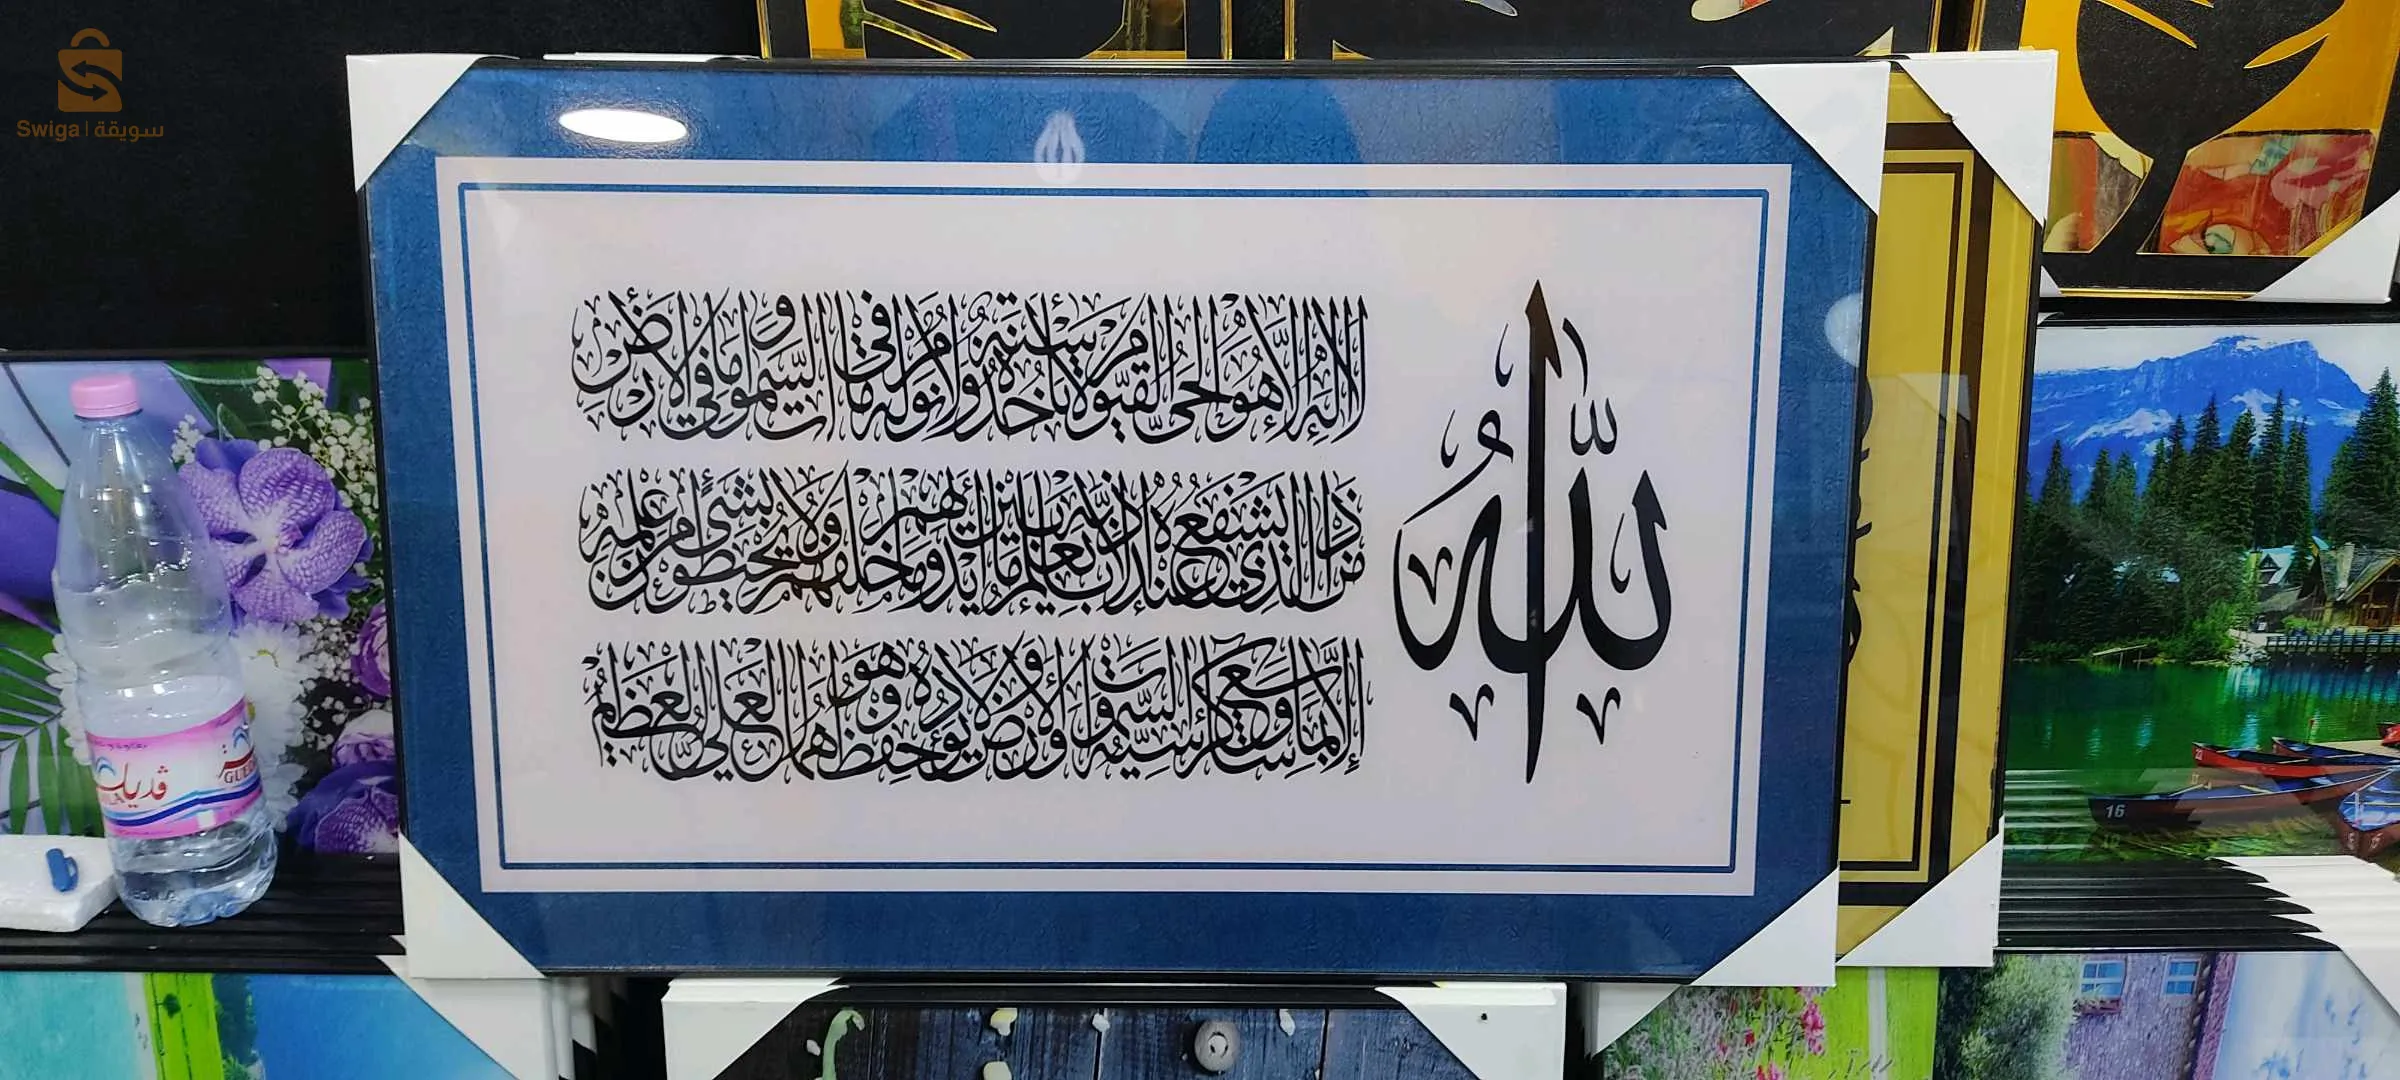 Swiga | سويقة
الله
لا إله إلا هو الحي القيوم لا تأخذه سنة ولا نوم له ما في السموات وما في الأرض
من ذا الذي يشفع عنده إلا بإذنه يعلم ما بين أيديهم وما خلفهم ولا يحيطون بشيء من علمه
إلا بما شاء وسع كرسيه السموات والأرض ولا يؤده حفظهما وهو العلي العظيم
ڤديلة
16